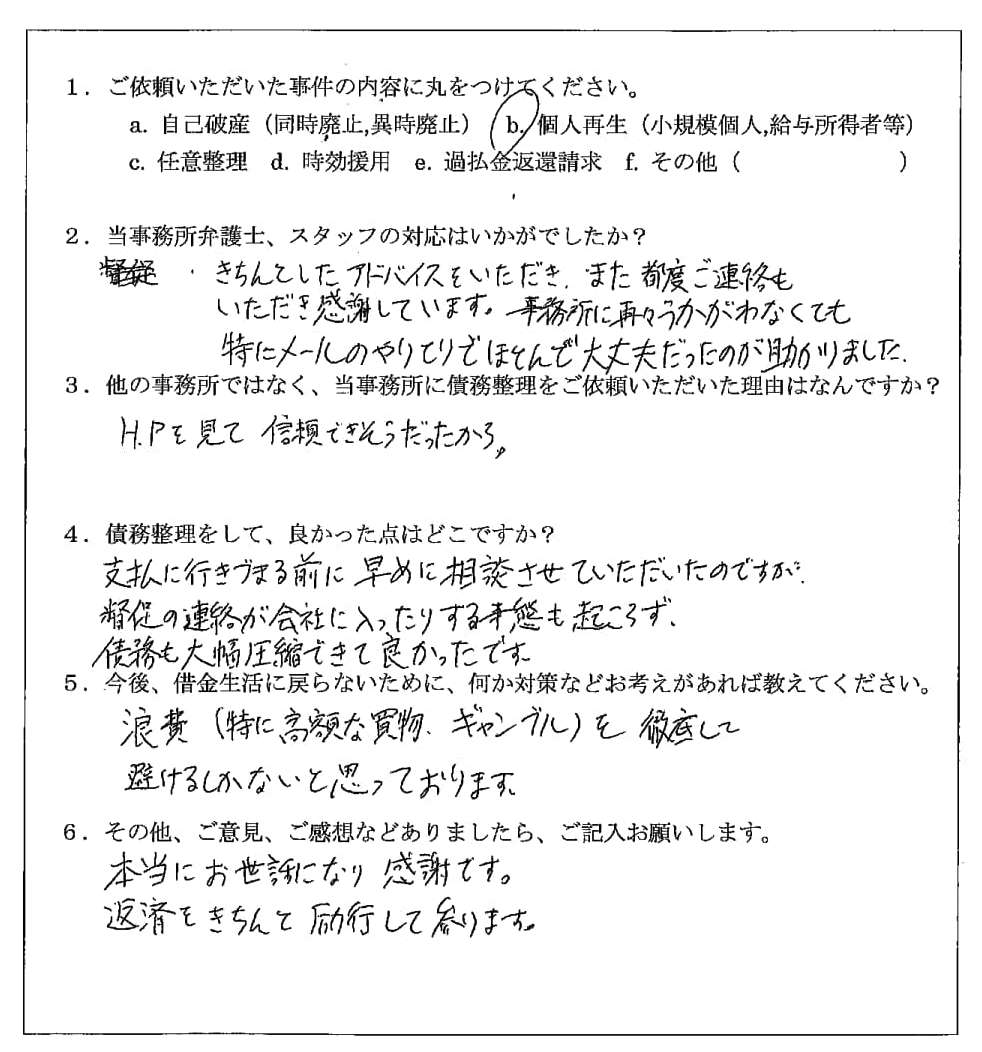 1．ご依頼いただいた事件の内容に丸をつけてください。
a. 自己破産（同時廃止,異時廃止） b. 個人再生（小規模個人,給与所得者等）
c. 任意整理 d. 時効援用 e. 過払金返還請求 f. その他（ ）
2．当事務所弁護士、スタッフの対応はいかがでしたか？
きちんとしたアドバイスをいただき、また都度ご連絡も
いただき感謝しています。事務所に再々うかがわなくても
特にメールのやりとりでほとんで大丈夫だったのが助かりました。
3．他の事務所ではなく、当事務所に債務整理をご依頼いただいた理由はなんですか？
H.Pを見て 信頼できそうだったから。
4．債務整理をして、良かった点はどこですか？
支払に行きづまる前に早めに相談させていただいたのですが、
督促の連絡が会社に入ったりする事態も起こらず、
債務も大幅圧縮できて良かったです。
5．今後、借金生活に戻らないために、何か対策などお考えがあれば教えてください。
浪費（特に高額な買物、ギャンブル）を 徹底して
避けるしかないと思っております。
6．その他、ご意見、ご感想などありましたら、ご記入お願いします。
本当にお世話になり 感謝です。
返済をきちんと励行して参ります。